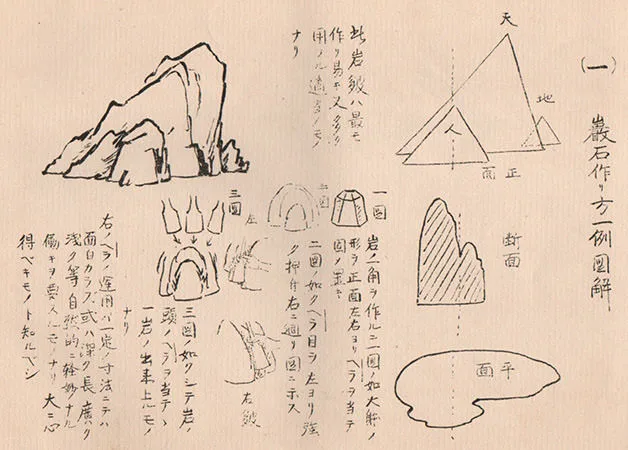 (一)
巖石作リ方一例圖解
天
地
人
正面
断面
平面
此岩皴ハ最モ
作リ易キ又多ク
用ノル適当ノモノ
ナリ
一圖
岩ノ一角ヲ作ルニ一圖ノ如大略ノ
形ヲ正面左右ヨリヘラヲ当テ
二圖
二圖ノ如クヘラ目ヲ左ヨリ強
ク押付右ニ廻リ圖ニホス
三圖
左
右皴
三圖ノ如クシテ岩ノ
頭ノヘラヲ当テ丶
一岩ノ出来上ルモノ
ナリ
右ノヘラノ運用ハ一定ノ寸法ニテハ
面白カラズ或ハ深ク長廣ク
浅ク等自然的ニ軽妙ナル
働キヲ要スルモノナリ大ニ心
得ベキモノト知ルベシ